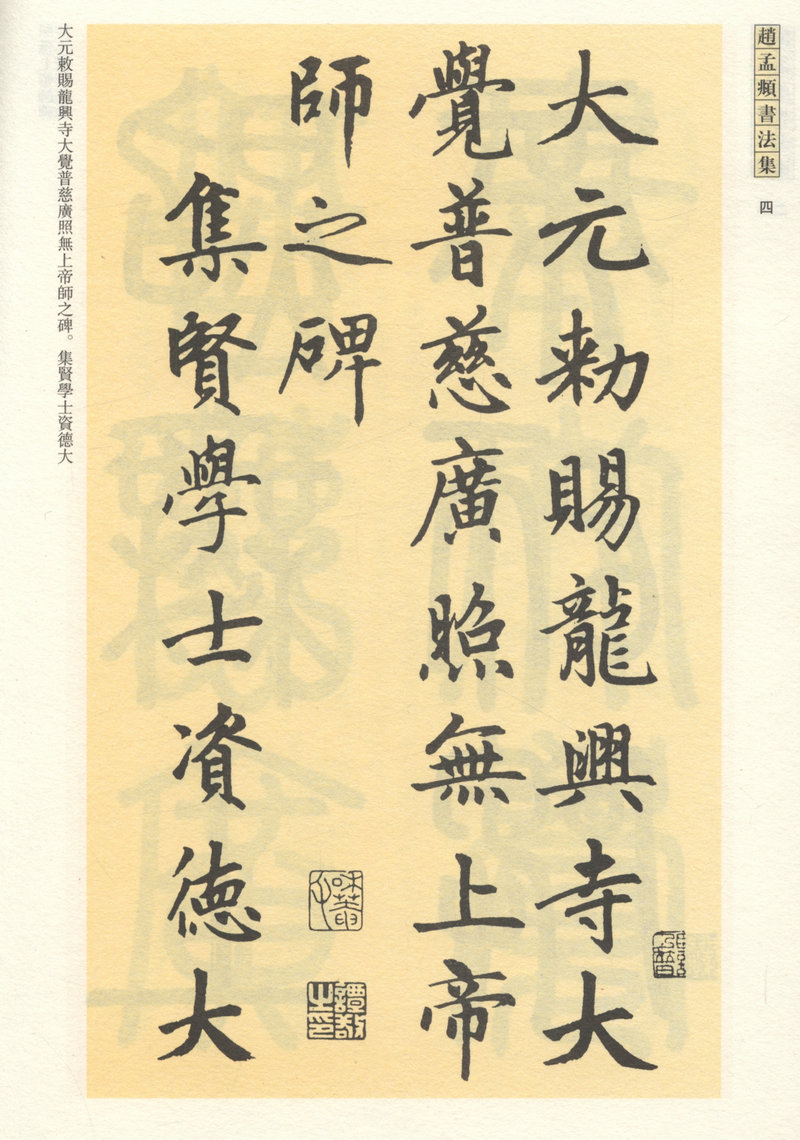 趙孟頫書法集
四
大元敕賜龍興寺大
覺普慈廣照無上帝
師之碑
集賢學士資德大
大元敕賜龍興寺大覺普慈廣照無上帝師之碑。集賢學士資德大